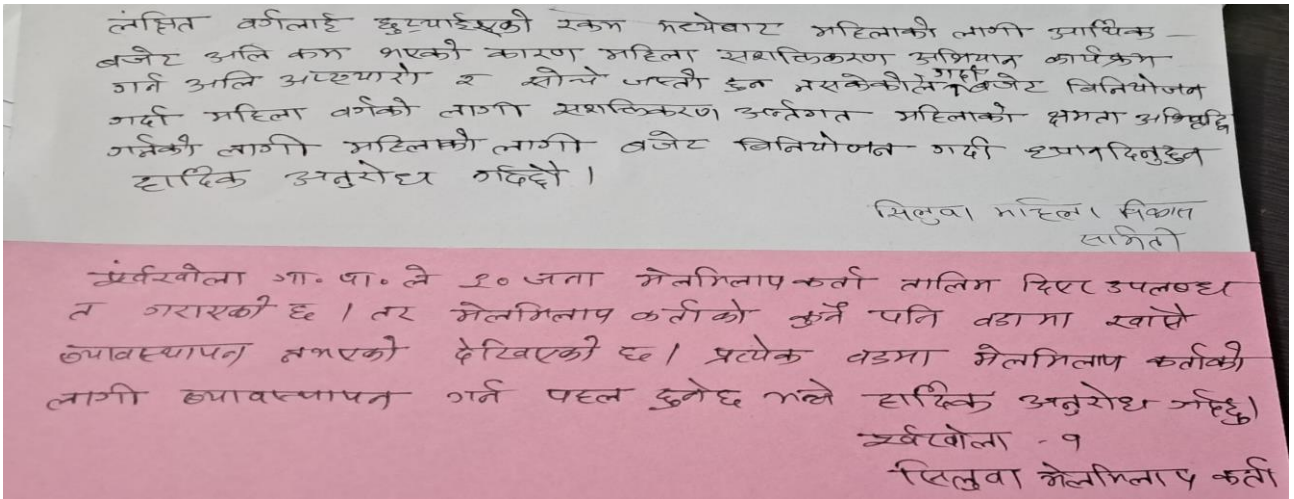 लक्षित वर्गलाई छुट्याईएको रकम मध्येबाट महिलाको लागी आर्थिक
बजेट अति कम भएको कारण महिला सशक्तिकरण अभियान कार्यक्रम
गर्न अति अप्ठ्यारो र सोचे जस्तो हुन नसकेकोले गर्दा बजेट विनियोजन
गर्दा महिला वर्गको लागी सशक्तिकरण अर्न्तगत महिलाको क्षमता अभिवृद्धि
गर्नको लागी महिलाको लागी बजेट विनियोजन गर्दा ध्यानदिनुहुन
हार्दिक अनुरोध गर्दछौ ।
सिलुवा महिला विकास
समिती
गा. पा. ले १० जना मेलमिलाप कर्ता तालिम दिएर उपलब्ध
त गराएको छ । तर मेलमिलाप कर्ताको कुनै पनि वडामा खासै
ब्यावस्थापन नभएको देखिएको छ । प्रत्येक वडामा मेलमिलाप कर्ताको
लागी ब्यावस्थापन गर्न पहल हुनेछ भन्ने हार्दिक अनुरोध गर्दछु।
- १
सिलुवा मेलमिलाप कर्ता